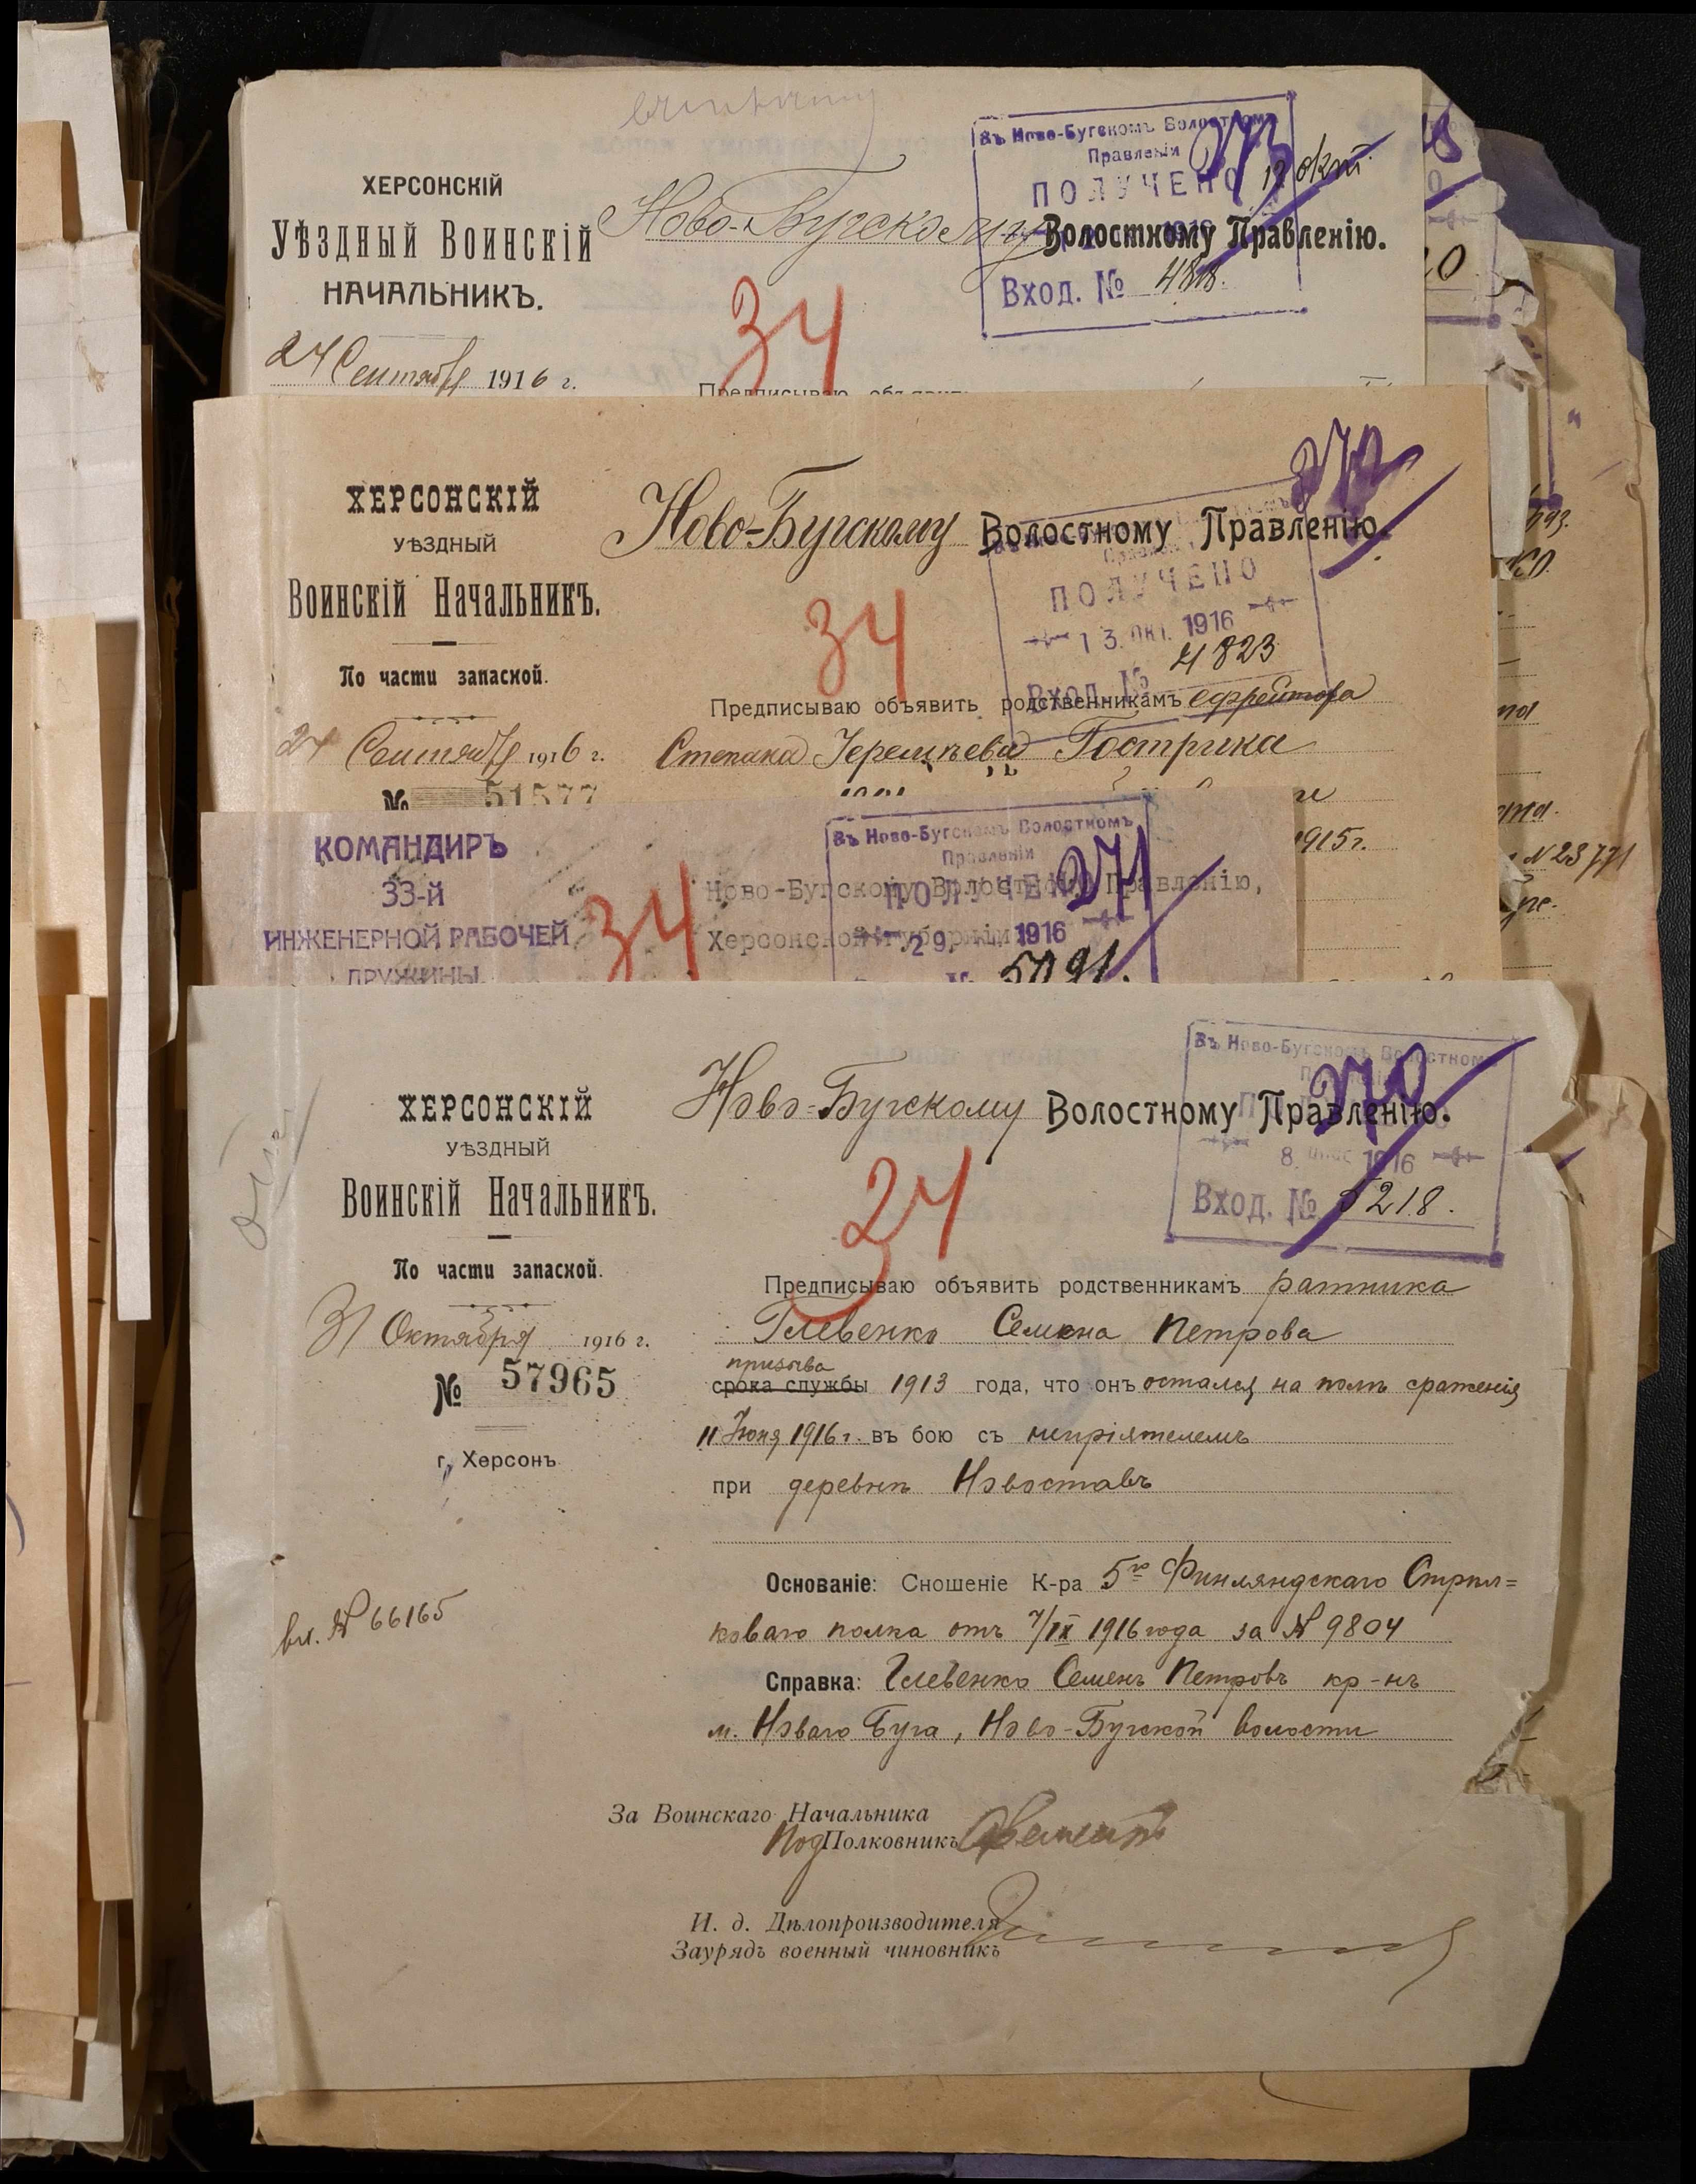 Въ Ново-Бугскомъ Волостномъ
Правленіи
273
ПОЛУЧЕНО
12 окт
1916
Вход. № 4818.
ХЕРСОНСКІЙ
УѢЗДНЫЙ ВОИНСКІЙ
НАЧАЛЬНИКЪ.
Ново-Бугскому Волостному Правленію.
34
24 Сентября 1916 г.
Предписываю объявить
272
ХЕРСОНСКІЙ
УѢЗДНЫЙ
ВОИНСКІЙ НАЧАЛЬНИКЪ.
По части запасной.
24 Сентября 1916 г.
№ 51577
Ново-Бугскому Волостному Правленію.
34
ПОЛУЧЕНО
13. ОКТ. 1916
Вход. № 4823
Предписываю объявить родственникамъ ефрейтора
Степана Іеремѣева Гострика
1915 г.
№ 23771
КОМАНДИРЪ
33-й
ИНЖЕНЕРНОЙ РАБОЧЕЙ
ДРУЖИНЫ
34
Въ Ново-Бугскомъ Волостномъ
Правленіи
271
ПОЛУЧЕНО
29 1916
№ 5091.
Ново-Бугскому Волостному Правленію,
Херсонской губерніи
ХЕРСОНСКІЙ
УѢЗДНЫЙ
ВОИНСКІЙ НАЧАЛЬНИКЪ.
По части запасной.
31 Октября 1916 г.
№ 57965
г. Херсонъ
вх. № 66165
Въ Ново-Бугскомъ Волостномъ
270
8. 1916
Вход. № 5218.
Ново-Бугскому Волостному Правленію.
34
Предписываю объявить родственникамъ ратника
Глевенко Семена Петрова
призыва
срока службы 1913 года, что онъ остался на полѣ сраженія
11 Іюня 1916 г. въ бою съ непріятелемъ
при деревнѣ Новоставъ
Основаніе: Сношеніе К-ра 5го Финляндскаго Стрѣл=
коваго полка отъ 7/IX 1916 года за № 9804
Справка: Глевенко Семенъ Петровъ кр-нъ
м. Новаго Буга, Ново-Бугской волости
За Воинскаго Начальника
ПодПолковникъ
И. д. Дѣлопроизводителя
Заурядъ военный чиновникъ